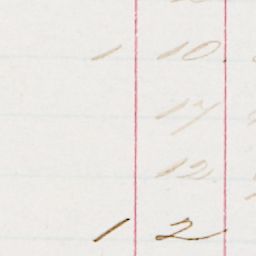 1 10
17
12
1 2